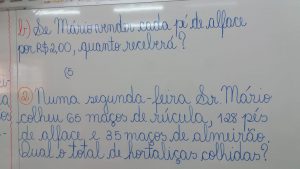 b) Se Mário vender cada pé de alface
por R$2,00, quanto receberá?
(5
2) Numa segunda-feira Sr. Mário
colheu 65 maços de rúcula, 128 pés
de alface e 35 maços de almeirão.
Qual o total de hortaliças colhidas?